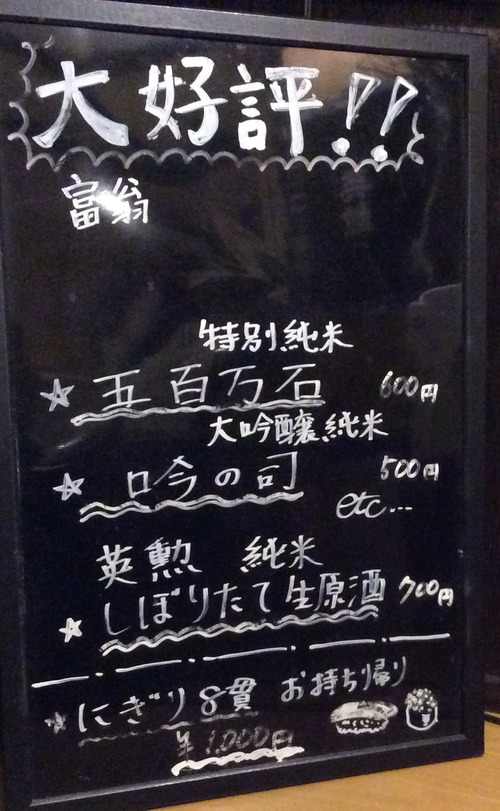 大好評!!
富翁
特別純米
☆ 五百万石 600円
大吟醸純米
☆ 吟の司 500円
etc...
英勲 純米
☆ しぼりたて生原酒 700円
☆ にぎり8貫 お持ち帰り
¥1,000円